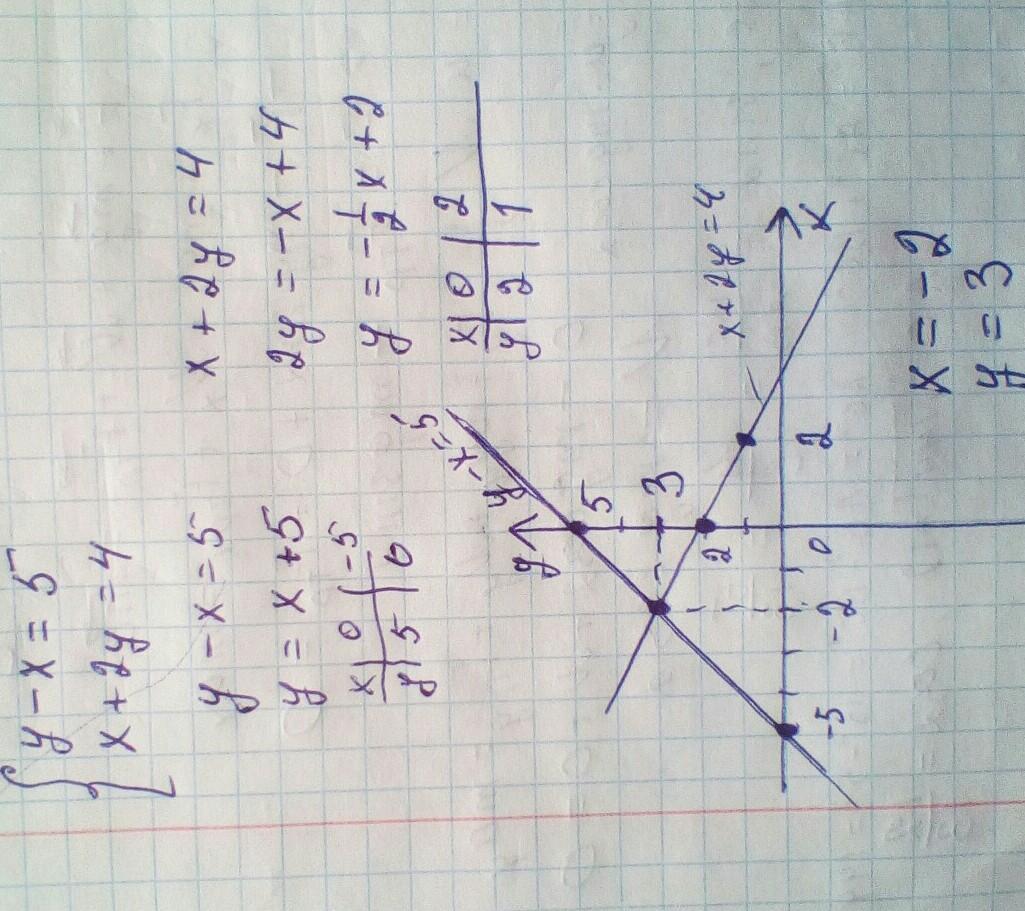 y - x = 5
x + 2y = 4
y - x = 5
y = x + 5
x | 0 | -5
y | 5 | 0
x + 2y = 4
2y = -x + 4
y = -1/2 x + 2
x | 0 | 2
y | 2 | 1
y
y - x = 5
5
3
2
x + 2y = 4
-5
-2
0
2
x
x = -2
y = 3